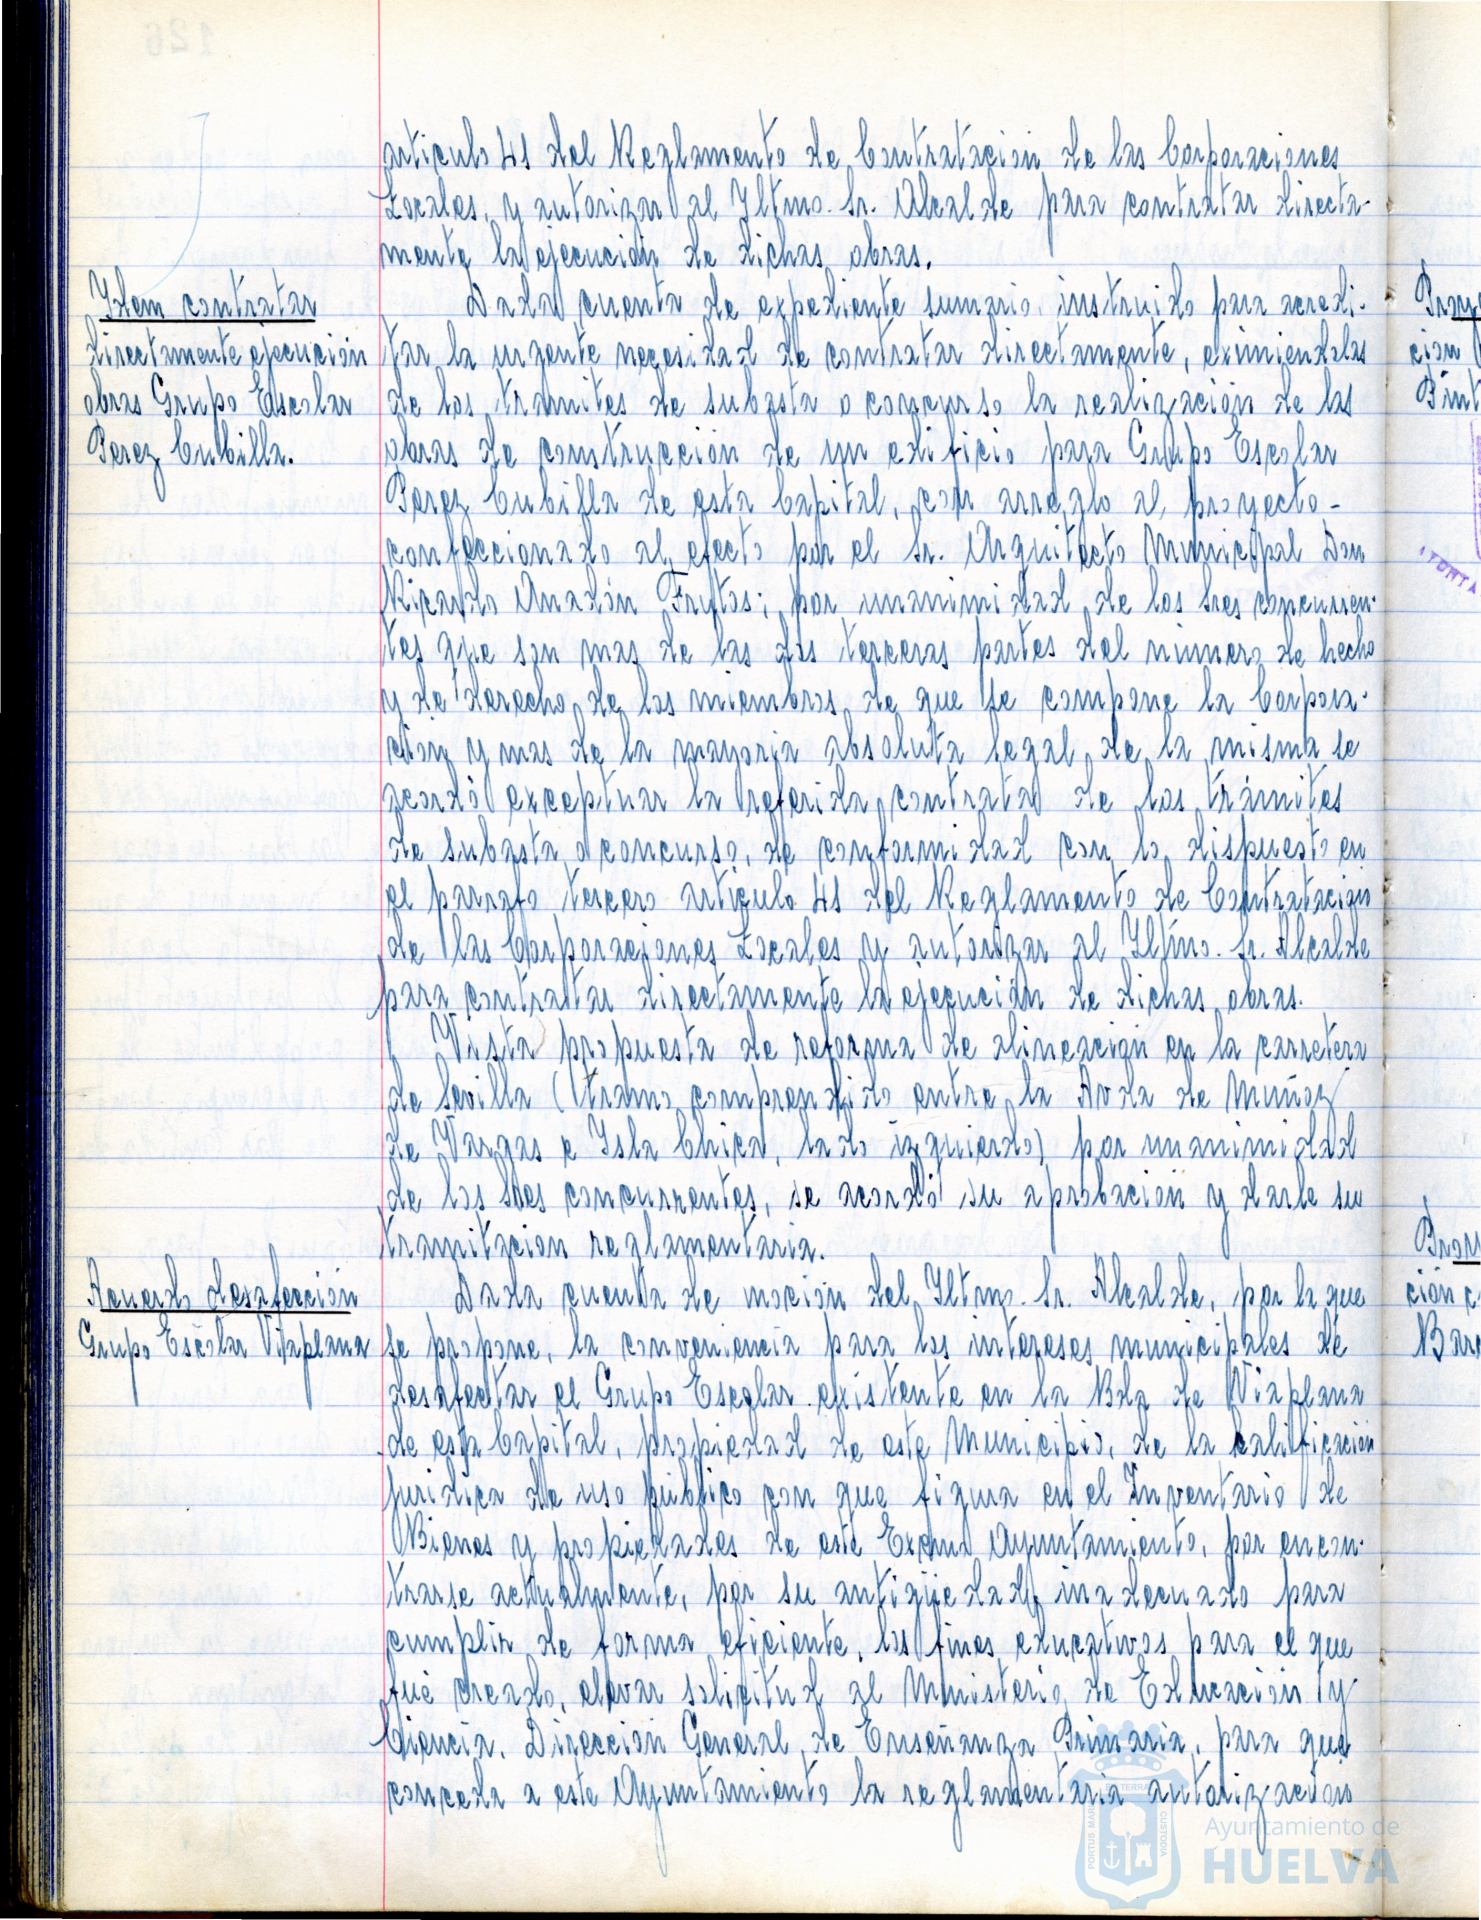 articulo 41 del Reglamento de Contratacion de las Corporaciones
Locales, y autorizar al Yltmo. Sr. Alcalde para contratar directa-
mente la ejecución de dichas obras.
Ydem contratar
directamente ejecución
obras Grupo Escolar
Perez Cubilla.
Dada cuenta de expediente sumario, instruido para acredi-
tar la urgente necesidad de contratar directamente, eximiendolas
de los tramites de subasta o concurso la realización de las
obras de construcción de un edificio para Grupo Escolar
Perez Cubilla de esta Capital, con arreglo al proyecto-
confeccionado al efecto por el Sr. Arquitecto Municipal Don
Ricardo Anadón Frutos; por unanimidad de los Sres concurren-
tes que son mas de las dos terceras partes del número de hecho
y de derecho de los miembros de que se compone la Corpora-
ción y mas de la mayoria absoluta legal de la misma se
acordó exceptuar la referida contrata de los trámites
de subasta o concurso, de conformidad con lo dispuesto en
el parrafo tercero articulo 41 del Reglamento de Contratacion
de las Corporaciones Locales y autorizar al Yltmo. Sr. Alcalde
para contratar directamente la ejecución de dichas obras.
Vista propuesta de reforma de alineación en la carretera
de Sevilla (tramo comprendido entre la Avda de Muñoz
de Vargas e Ysla Chica, lado izquierdo) por unanimidad
de los Sres concurrentes, se acordó su aprobación y darle su
tramitacion reglamentaria.
Acuerdo desafección
Grupo Escolar Viaplana
Dada cuenta de moción del Yltmo. Sr. Alcalde, por la que
se propone, la conveniencia para los intereses municipales de
desafectar el Grupo Escolar existente en la Bda de Viaplana
de esta Capital, propiedad de este Municipio, de la calificación
juridica de uso público con que figura en el Inventario de
Bienes y propiedades de este Excmo Ayuntamiento, por encon-
trarse actualmente, por su antigüedad, inadecuado para
cumplir de forma eficiente, los fines educativos para el que
fué creado, elevar solicitud al Ministerio de Educación y
Ciencia, Dirección General de Enseñanza Primaria, para que
conceda a este Ayuntamiento la reglamentaria autorización
Ayuntamiento de
HUELVA